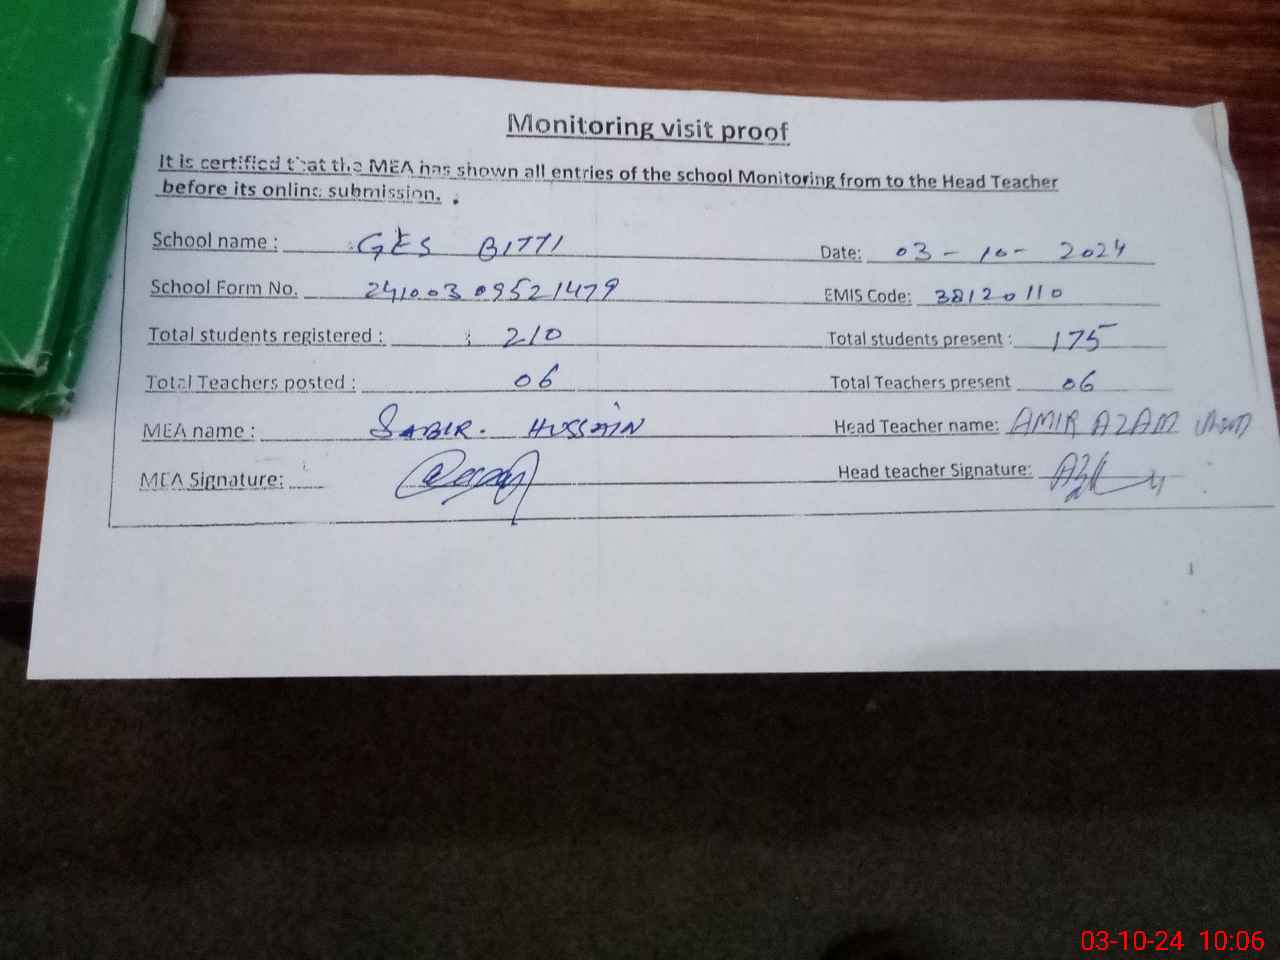 Monitoring visit proof
It is certified that the MEA has shown all entries of the school Monitoring from to the Head Teacher
before its online submission.
School name : GES BITTI Date: 03-10-2024
School Form No. 24100309521479 EMIS Code: 38120110
Total students registered : 210 Total students present : 175
Total Teachers posted : 06 Total Teachers present 06
MEA name : SABIR. HUSSAIN Head Teacher name: AMIR AZAM
MEA Signature: Head teacher Signature:
03-10-24 10:06